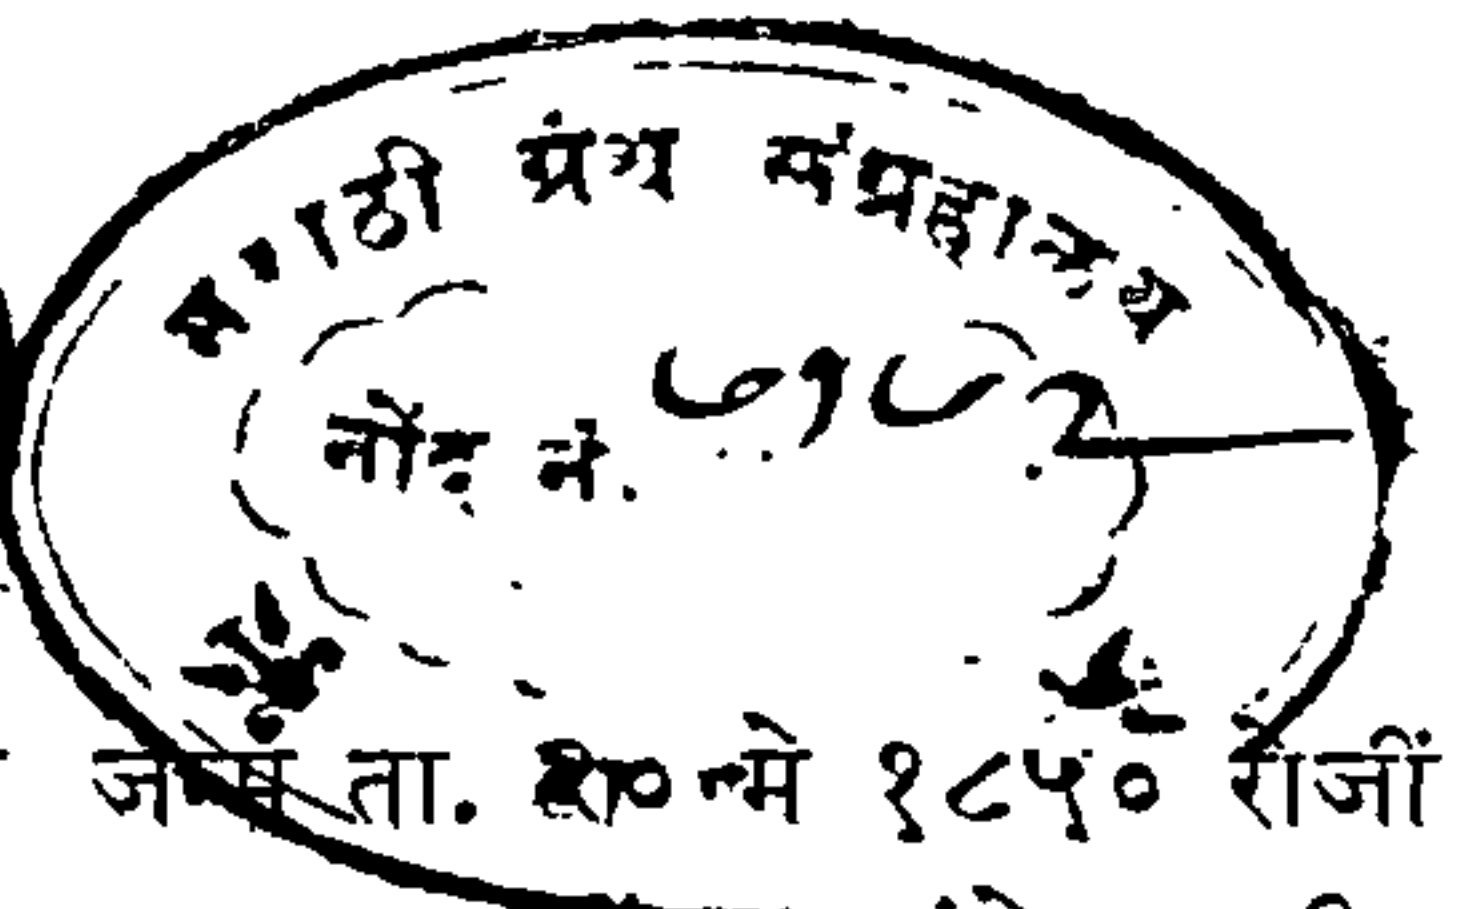 मराठी ग्रंथ संग्रहालय
नोंद नं. ७१८२
जन्म ता. २० मे १८५० रोजीं